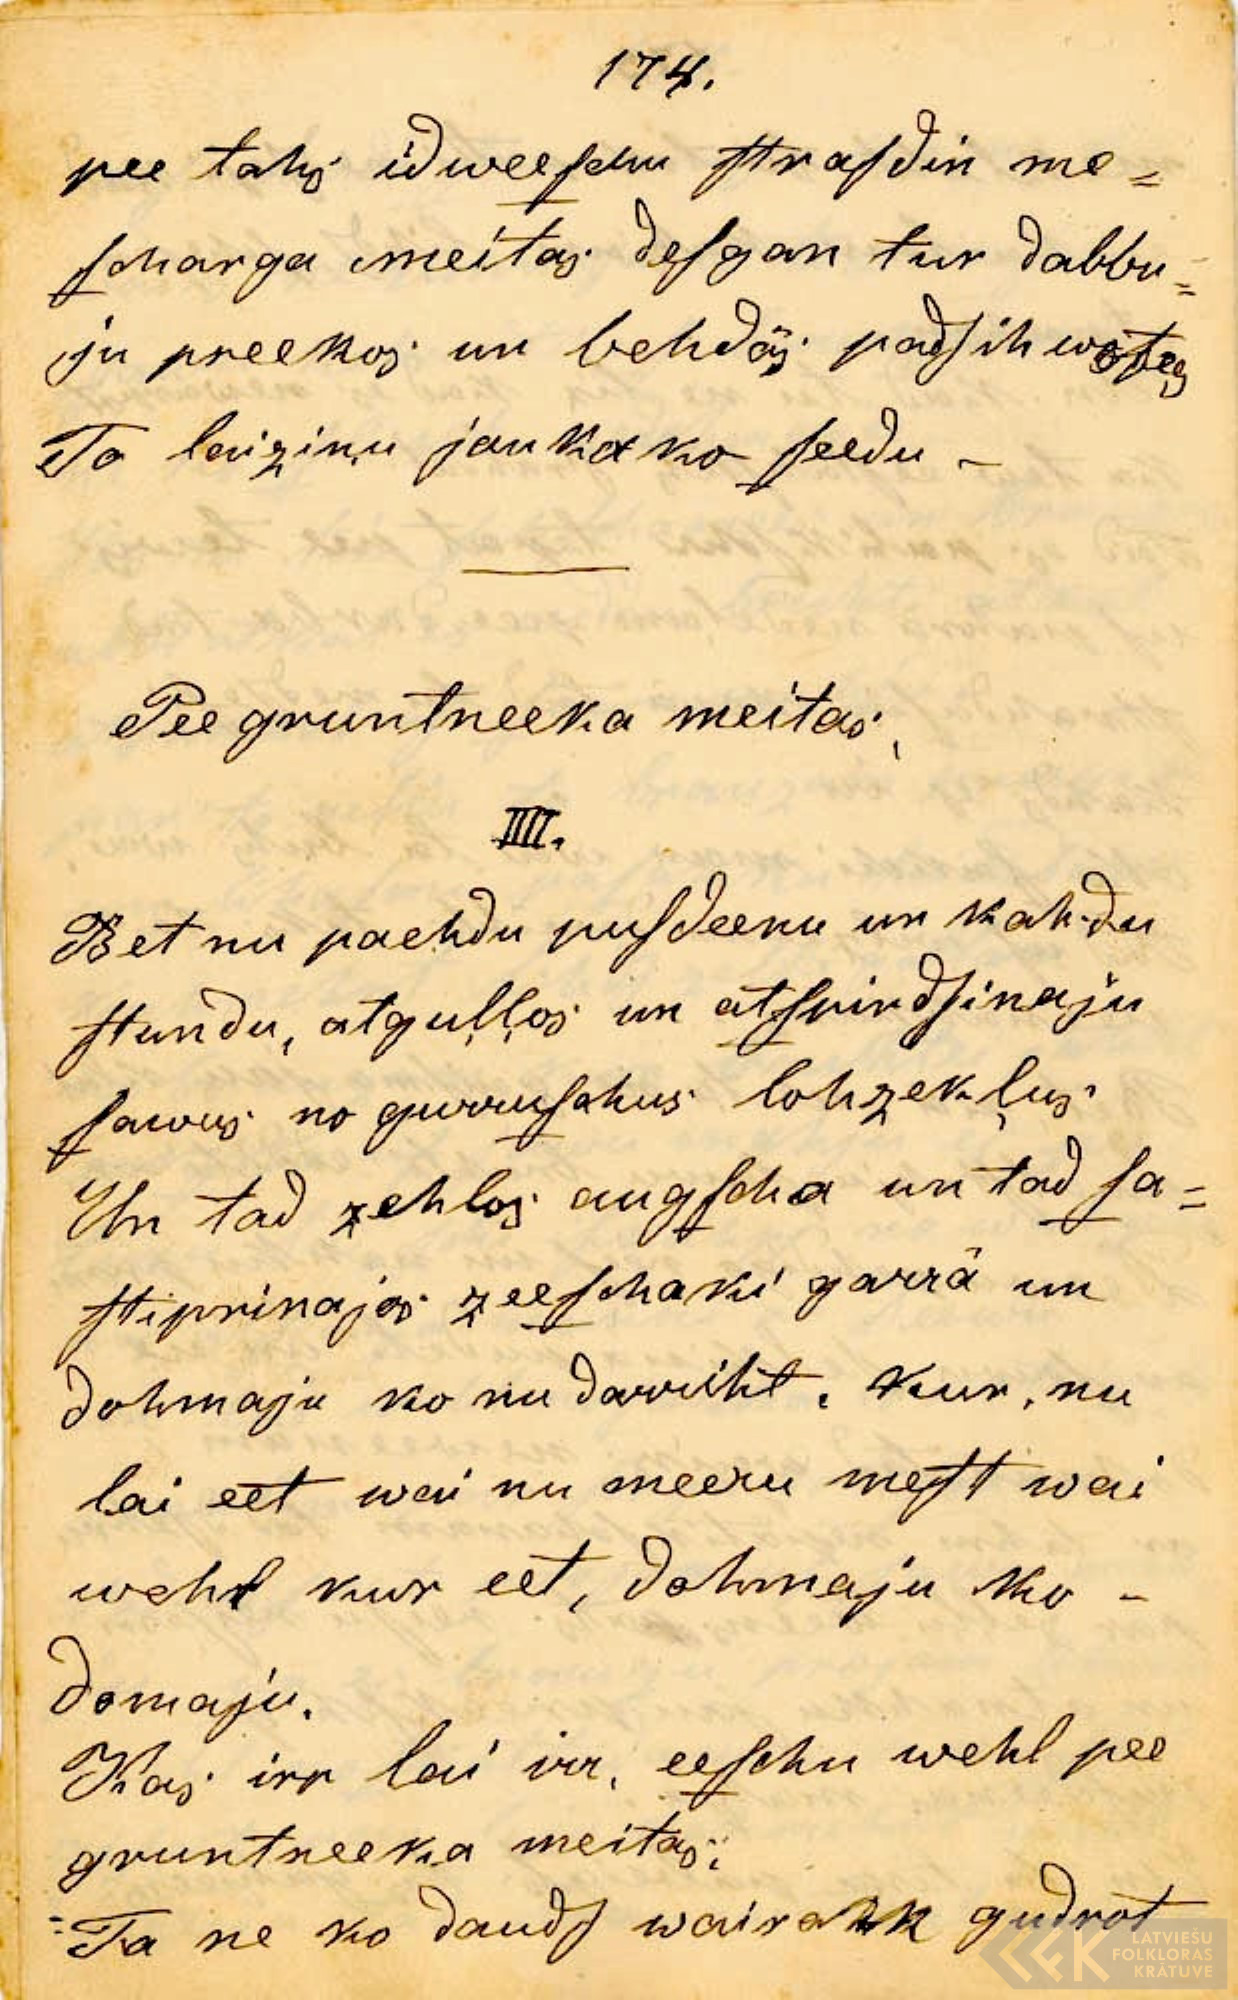 174.
pee tahs idweeſchu ſtraſdin me=
ſcharga meitas deſgan tur dabbu=
ju preekos un behdäs padſihwotes
To laiziņu jaukako ſeedu -
Pee gruntneeka meitas,
IIII.
Bet nu paehdu puſdeenu un kahdu
ſtundu, atguļļos un atſpirdſinaju
ſawus no gurruſchus lohzekļus
Un tad zehlos augſcha un tad ſa=
ſtiprinajos zeeſchaki garrä un
dohmaju ko nu darriht. Kur, nu
lai eet wai nu meeru meſt wai
wehl kur eet, dohmaju ko -
domaju.
Kas irr lai irr, eeſchu wehl pee
gruntneeka meitas;
Ta ne ko daudſ wairak gudrot
LATVIEŠU
FOLKLORAS
KRĀTUVE